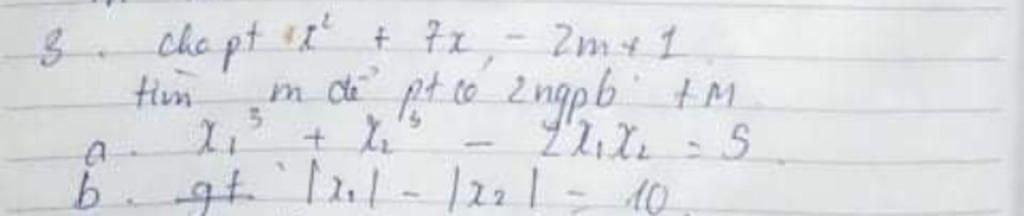 3. cho pt x² + 7x - 2m + 1
tìm m để pt có 2ngpb tM
a. x₁³ + x₂³ - 2x₁x₂ = 5
b. |x₁| - |x₂| = 10